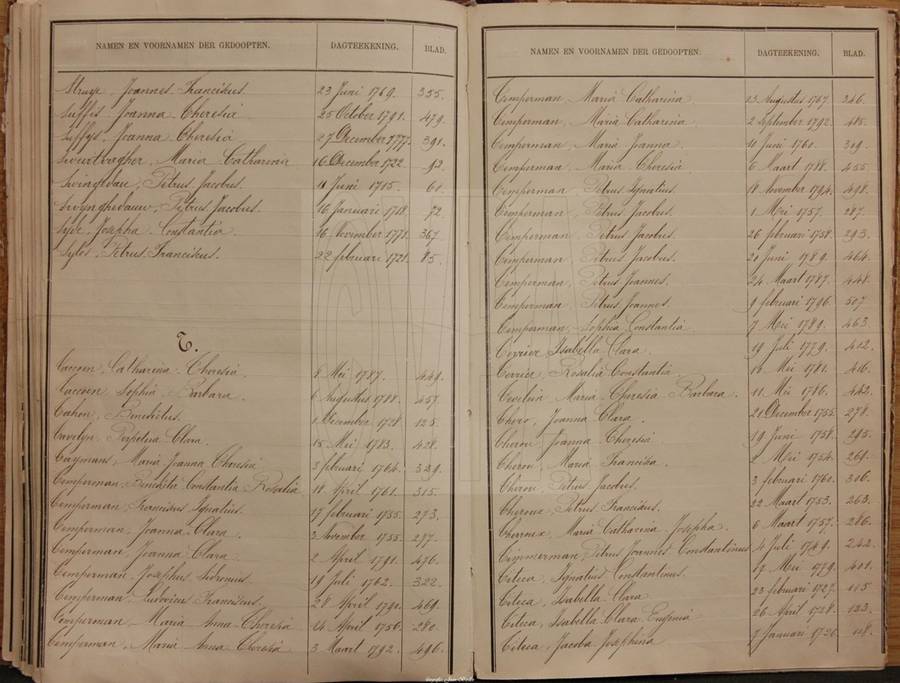 NAMEN EN VOORNAMEN DER GEDOOPTEN. DAGTEEKENING. BLAD.
Struye, Joannes Franciskus 23 Juni 1769. 355.
Suffis, Joanna Theresia 25 October 1791. 479.
Suffys, Joanna Theresia 27 December 1777. 391.
Maria Catharina 16 December 1722. 92.
Swinghedau, Petrus Jacobus. 11 Juni 1715. 61
Swynghedauw, Petrus Jacobus. 16 Januari 1718. 72
Josepha Constantia 16 November 1771. 367.
Syloo, Petrus Franciskus. 22 februari 1721. 85.
T.
Taccoen, Catharina Theresia 8 Mei 1787. 449.
Taccoen, Sophia Barbara. 6 Augustus 1788. 457
Tahon, Benedictus. 1 December 1728 125.
Perpetua Clara. 15 Mei 1783. 428.
Taymans, Maria Joanna Theresia 3 februari 1764. 329.
Temperman, Benedicta Constantia Rosalia 18 April 1761. 315.
Temperman, Franciscus Ignatius. 17 februari 1755. 273.
Temperman, Joanna Clara. 3 November 1755. 277.
Temperman, Joanna Clara. 2 April 1791. 476.
Temperman, Josephus Sidronius. 19 Juli 1762. 322.
Temperman, Ludovicus Franciscus. 28 April 1790. 469.
Temperman, Maria Anna Theresia 24 April 1756. 280.
Temperman, Maria Anna Theresia 3 Maart 1792. 496.
NAMEN EN VOORNAMEN DER GEDOOPTEN. DAGTEEKENING. BLAD.
Temperman, Maria Catharina 23 Augustus 1767. 346.
Temperman, Maria Catharina 2 September 1792. 485.
Temperman, Maria Joanna 11 Juni 1760. 309.
Temperman, Maria Theresia 6 Maart 1788. 455
Temperman, Petrus Ignatius. 18 November 1794. 498.
Temperman, Petrus Jacobus. 1 Mei 1757. 287.
Temperman, Petrus Jacobus. 26 februari 1758. 293.
Temperman, Petrus Jacobus. 20 Juni 1789. 464.
Temperman, Petrus Joannes. 24 Maart 1787. 448.
Temperman, Petrus Joannes. 9 februari 1796. 507
Temperman, Sophia Constantia 7 Mei 1789. 463.
Terrier, Isabella Clara. 19 Juli 1779. 402.
Terrier, Rosalia Constantia. 12 Mei 1781. 416.
Maria Theresia Barbara. 11 Mei 1786. 442.
Thero, Joanna Clara. 21 December 1755. 278.
Therou, Joanna Theresia 19 Juni 1758. 295.
Therou, Maria Francisca. 2 Mei 1754. 269.
Therou, Petrus Jacobus. 3 februari 1760. 306.
Theroux, Petrus Franciscus. 22 Maart 1753. 263.
Theroux, Maria Catharina Josepha. 6 Maart 1757. 286.
Timmerman, Petrus Joannes Constantinus 4 Juli 1749. 242.
Titeca, Ignatius Constantinus. 17 Mei 1779. 401.
Titeca, Isabella Clara 23 februari 1727. 115.
Titeca, Isabella Clara Eugenia 26 April 1728. 123.
Titeca, Jacoba Josephina 7 Januari 118.